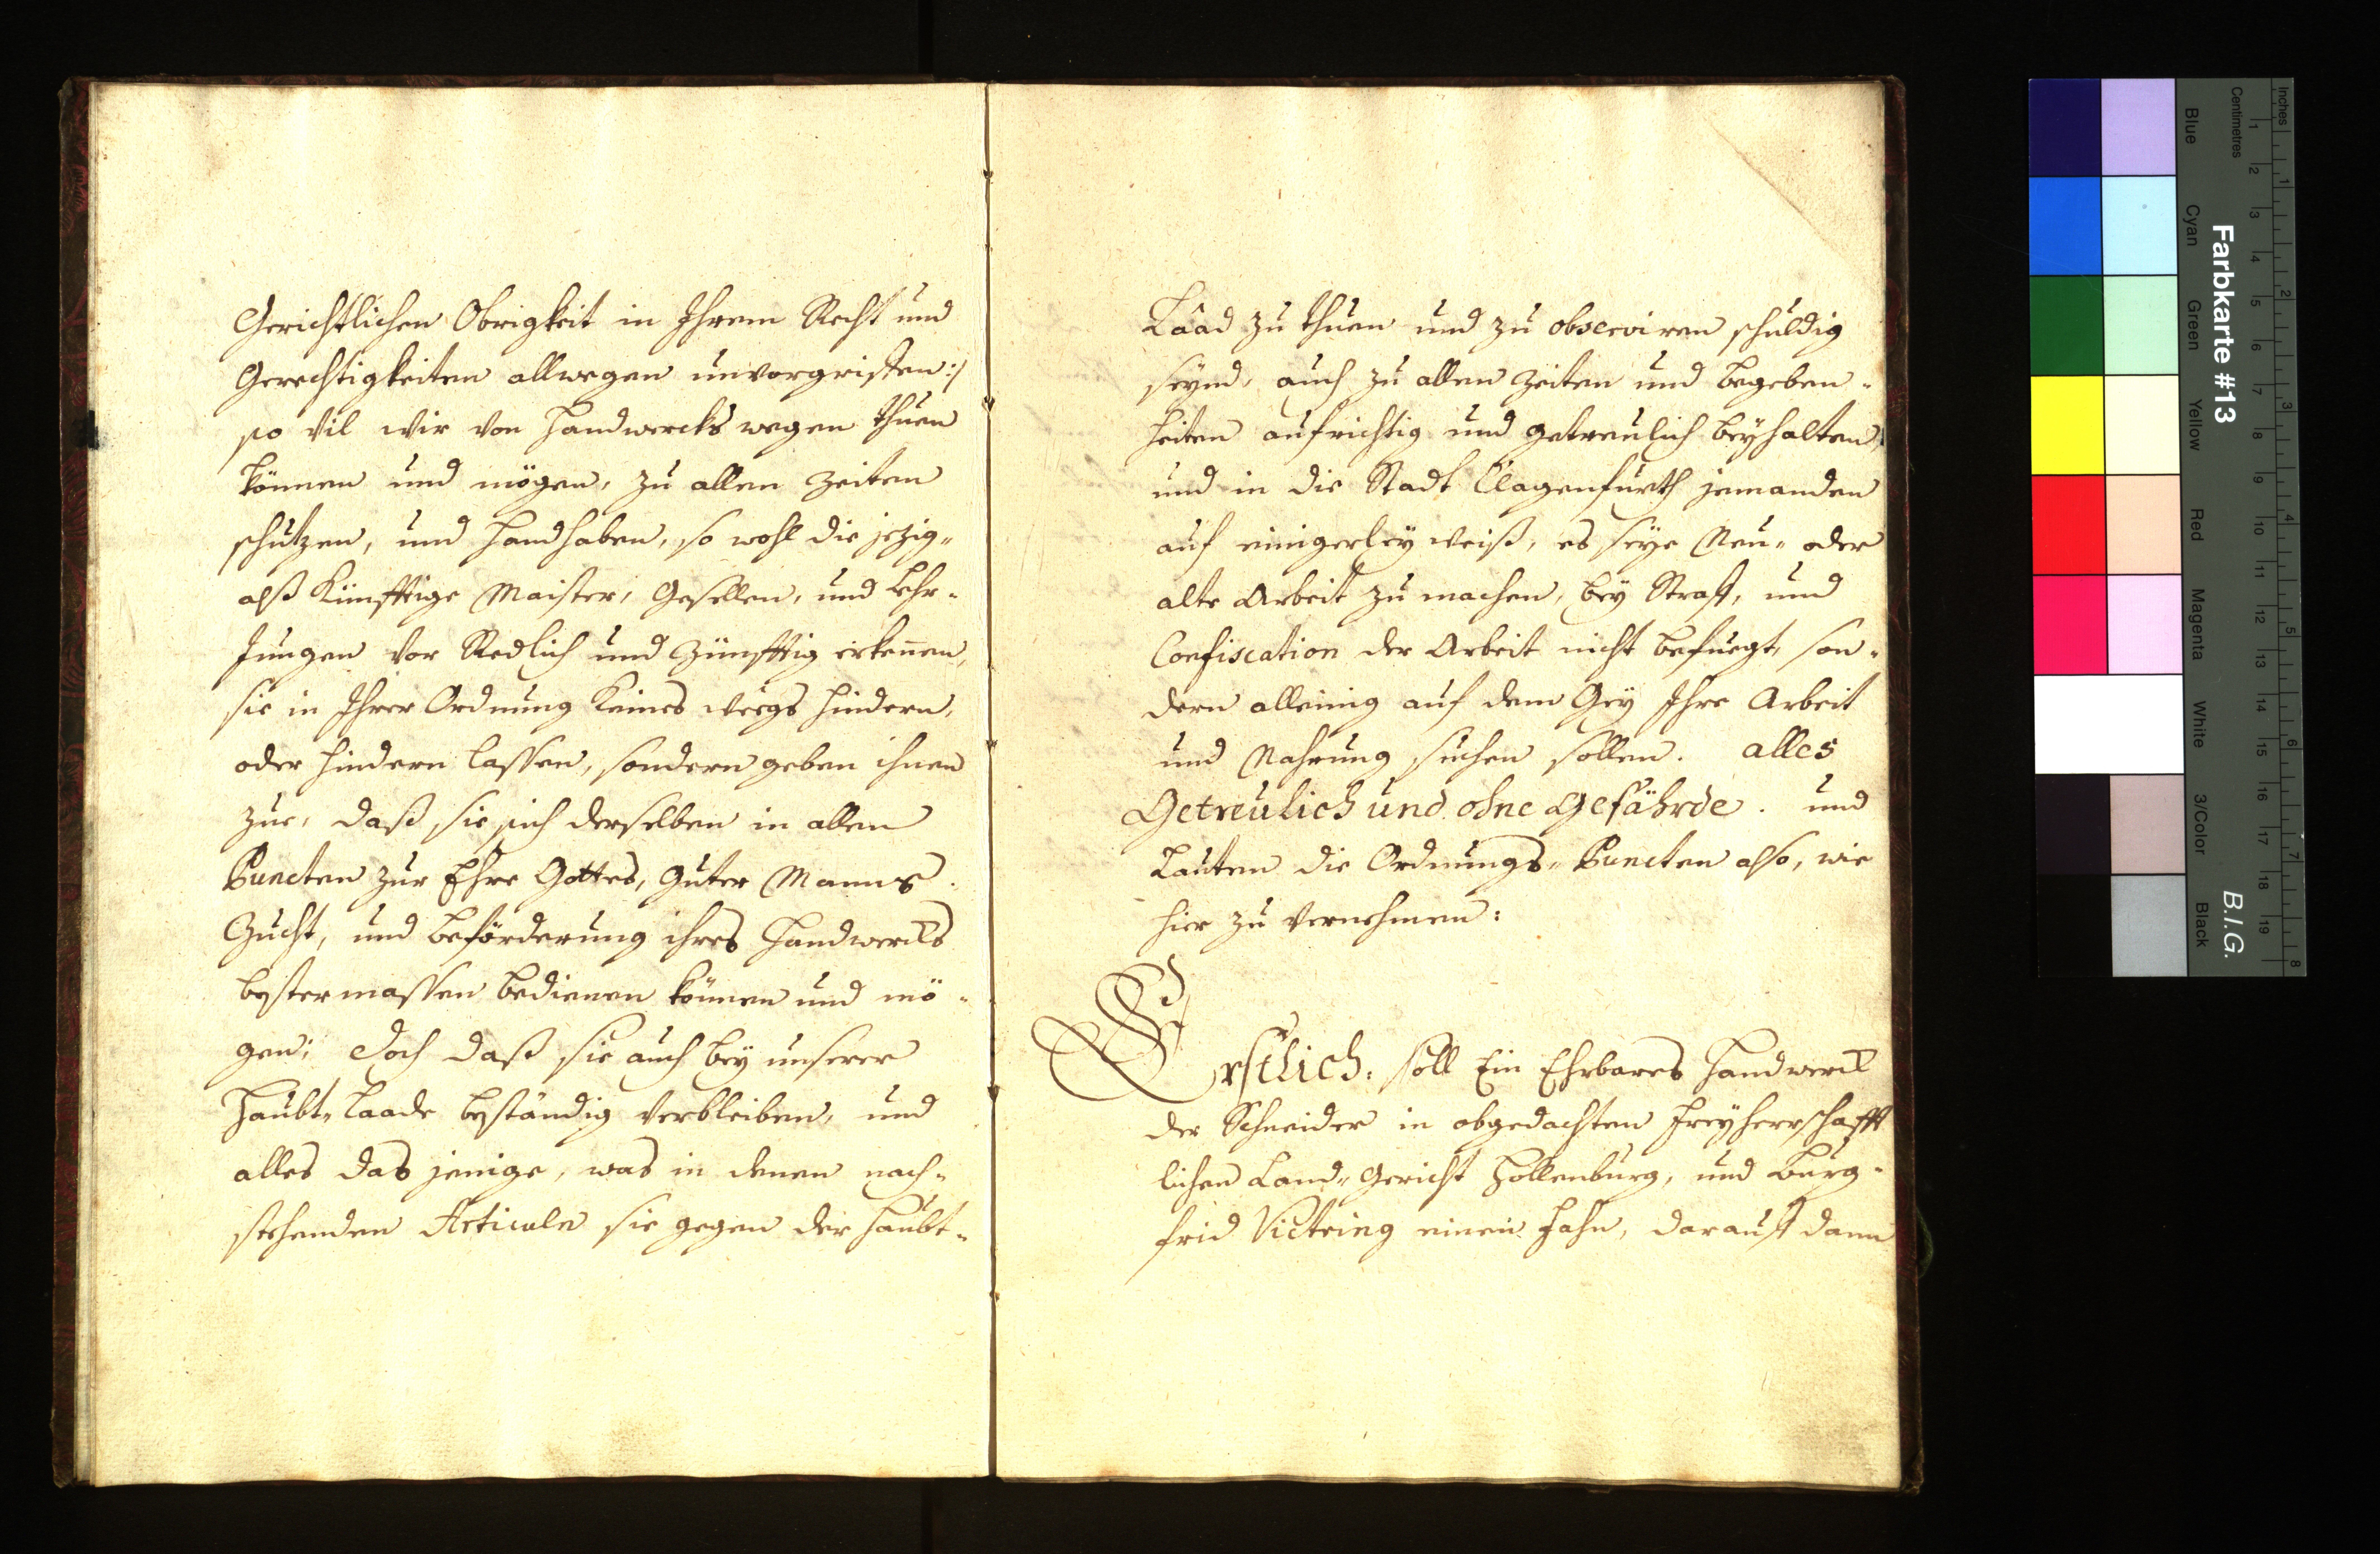 Gerichtlichen Obrigkeit in Ihrem Recht und
Gerechtigkeiten allwegen unvorgriffen :/
so vil wir von Handwercks wegen thuen
können und mögen, zu allen Zeiten
schutzen, und Handhaben, so wohl die jezig-
alß Künfftige Maister, Gesellen, und Lehr-
Jungen vor Redlich und Zünfftig erkennen,
sie in Ihrer Ordnung Keines weegs hindern,
oder hindern lassen, sondern geben ihnen
zue, daß sie sich derselben in allen
Puncten zur Ehre Gottes, guter Manns
Zucht, und beförderung ihres Handwercks
bester massen bedienen können und mö-
gen; Doch daß sie auch bey unserer
Haubt-Laade beständig verbleiben, und
alles das jenige, was in denen nach-
stehenden Articuln sie gegen der Haubt-
Laad zu thuen und zu observiren schuldig
seynd, auch zu allen Zeiten und begeben-
heiten aufrichtig und getreulich beyhalten,
und in die Stadt Clagenfurth jemanden
auf einigerley weiß, es seye Neu- oder
alte Arbeit zu machen, bey Straff, und
Confiscation der Arbeit nicht befuegt, son-
dern alleinig auf dem Gey Ihre Arbeit
und Nahrung suchen sollen. alles
Getreulich und ohne Gefährde. und
Lauten die Ordnungs-Puncten also, wie
hier zu vernehmen:
Erstlich: soll Ein Ehrbares Handwerck
der Schneider in obgedachten Freyherrschafft
lichen Land-Gericht Hollenburg, und Burg-
frid Victring einen Fahn, darauff dann
Farbkarte #13
B.I.G.
Inches 1 2 3 4 5 6 7 8
Centimetres 1 2 3 4 5 6 7 8 9 10 11 12 13 14 15 16 17 18 19
Blue Cyan Green Yellow Red Magenta White 3/Color Black